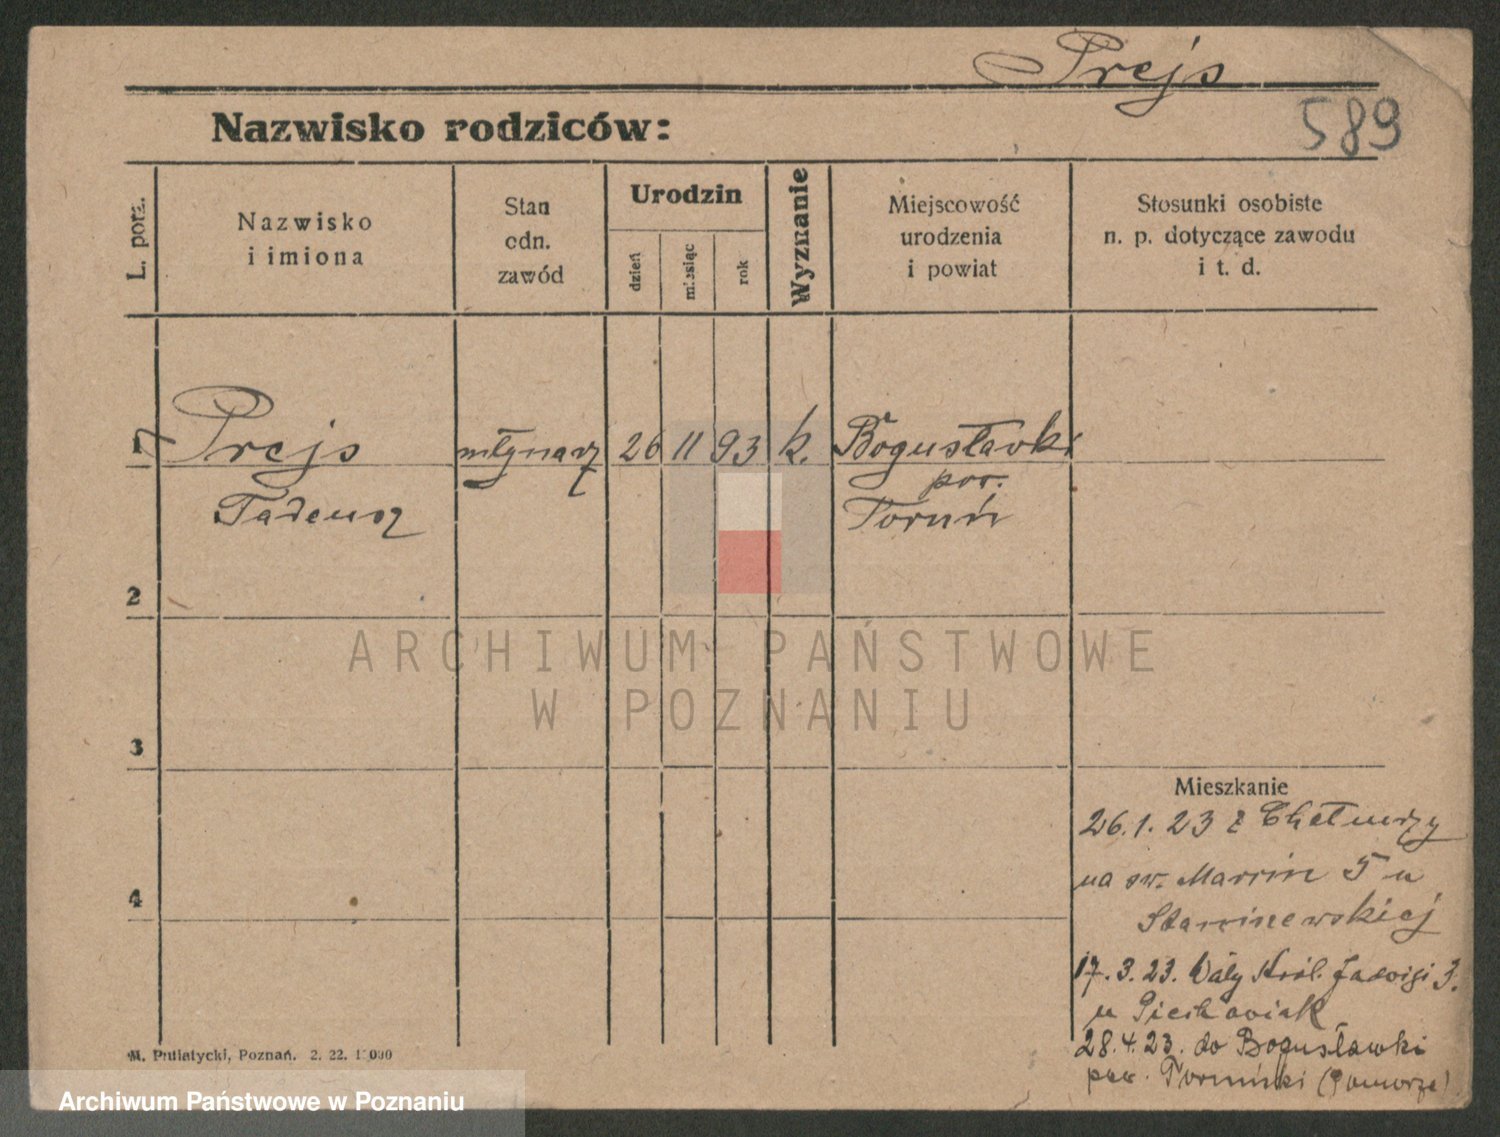 Prejs
589
Nazwisko rodziców:
L. porz.
Nazwisko
i imiona
Stan
odn.
zawód
Urodzin
dzień
miesiąc
rok
Wyznanie
Miejscowość
urodzenia
i powiat
Stosunki osobiste
n. p. dotyczące zawodu
i t. d.
1 Prejs młynarz 26 11 93 k. Bogusławki
pow.
Tadeusz Toruń
2
ARCHIWUM PAŃSTWOWE
W POZNANIU
3
Mieszkanie
26.1.23 z Chełmży
na św. Marcin 5 u
4
17.3.23. Wały Król. Jadwigi 3.
u Piechowiak
28.4.23. do Bogusławki
pow. Toruński (Pomorze)
M. Putiatycki, Poznań. 2. 22.
Archiwum Państwowe w Poznaniu